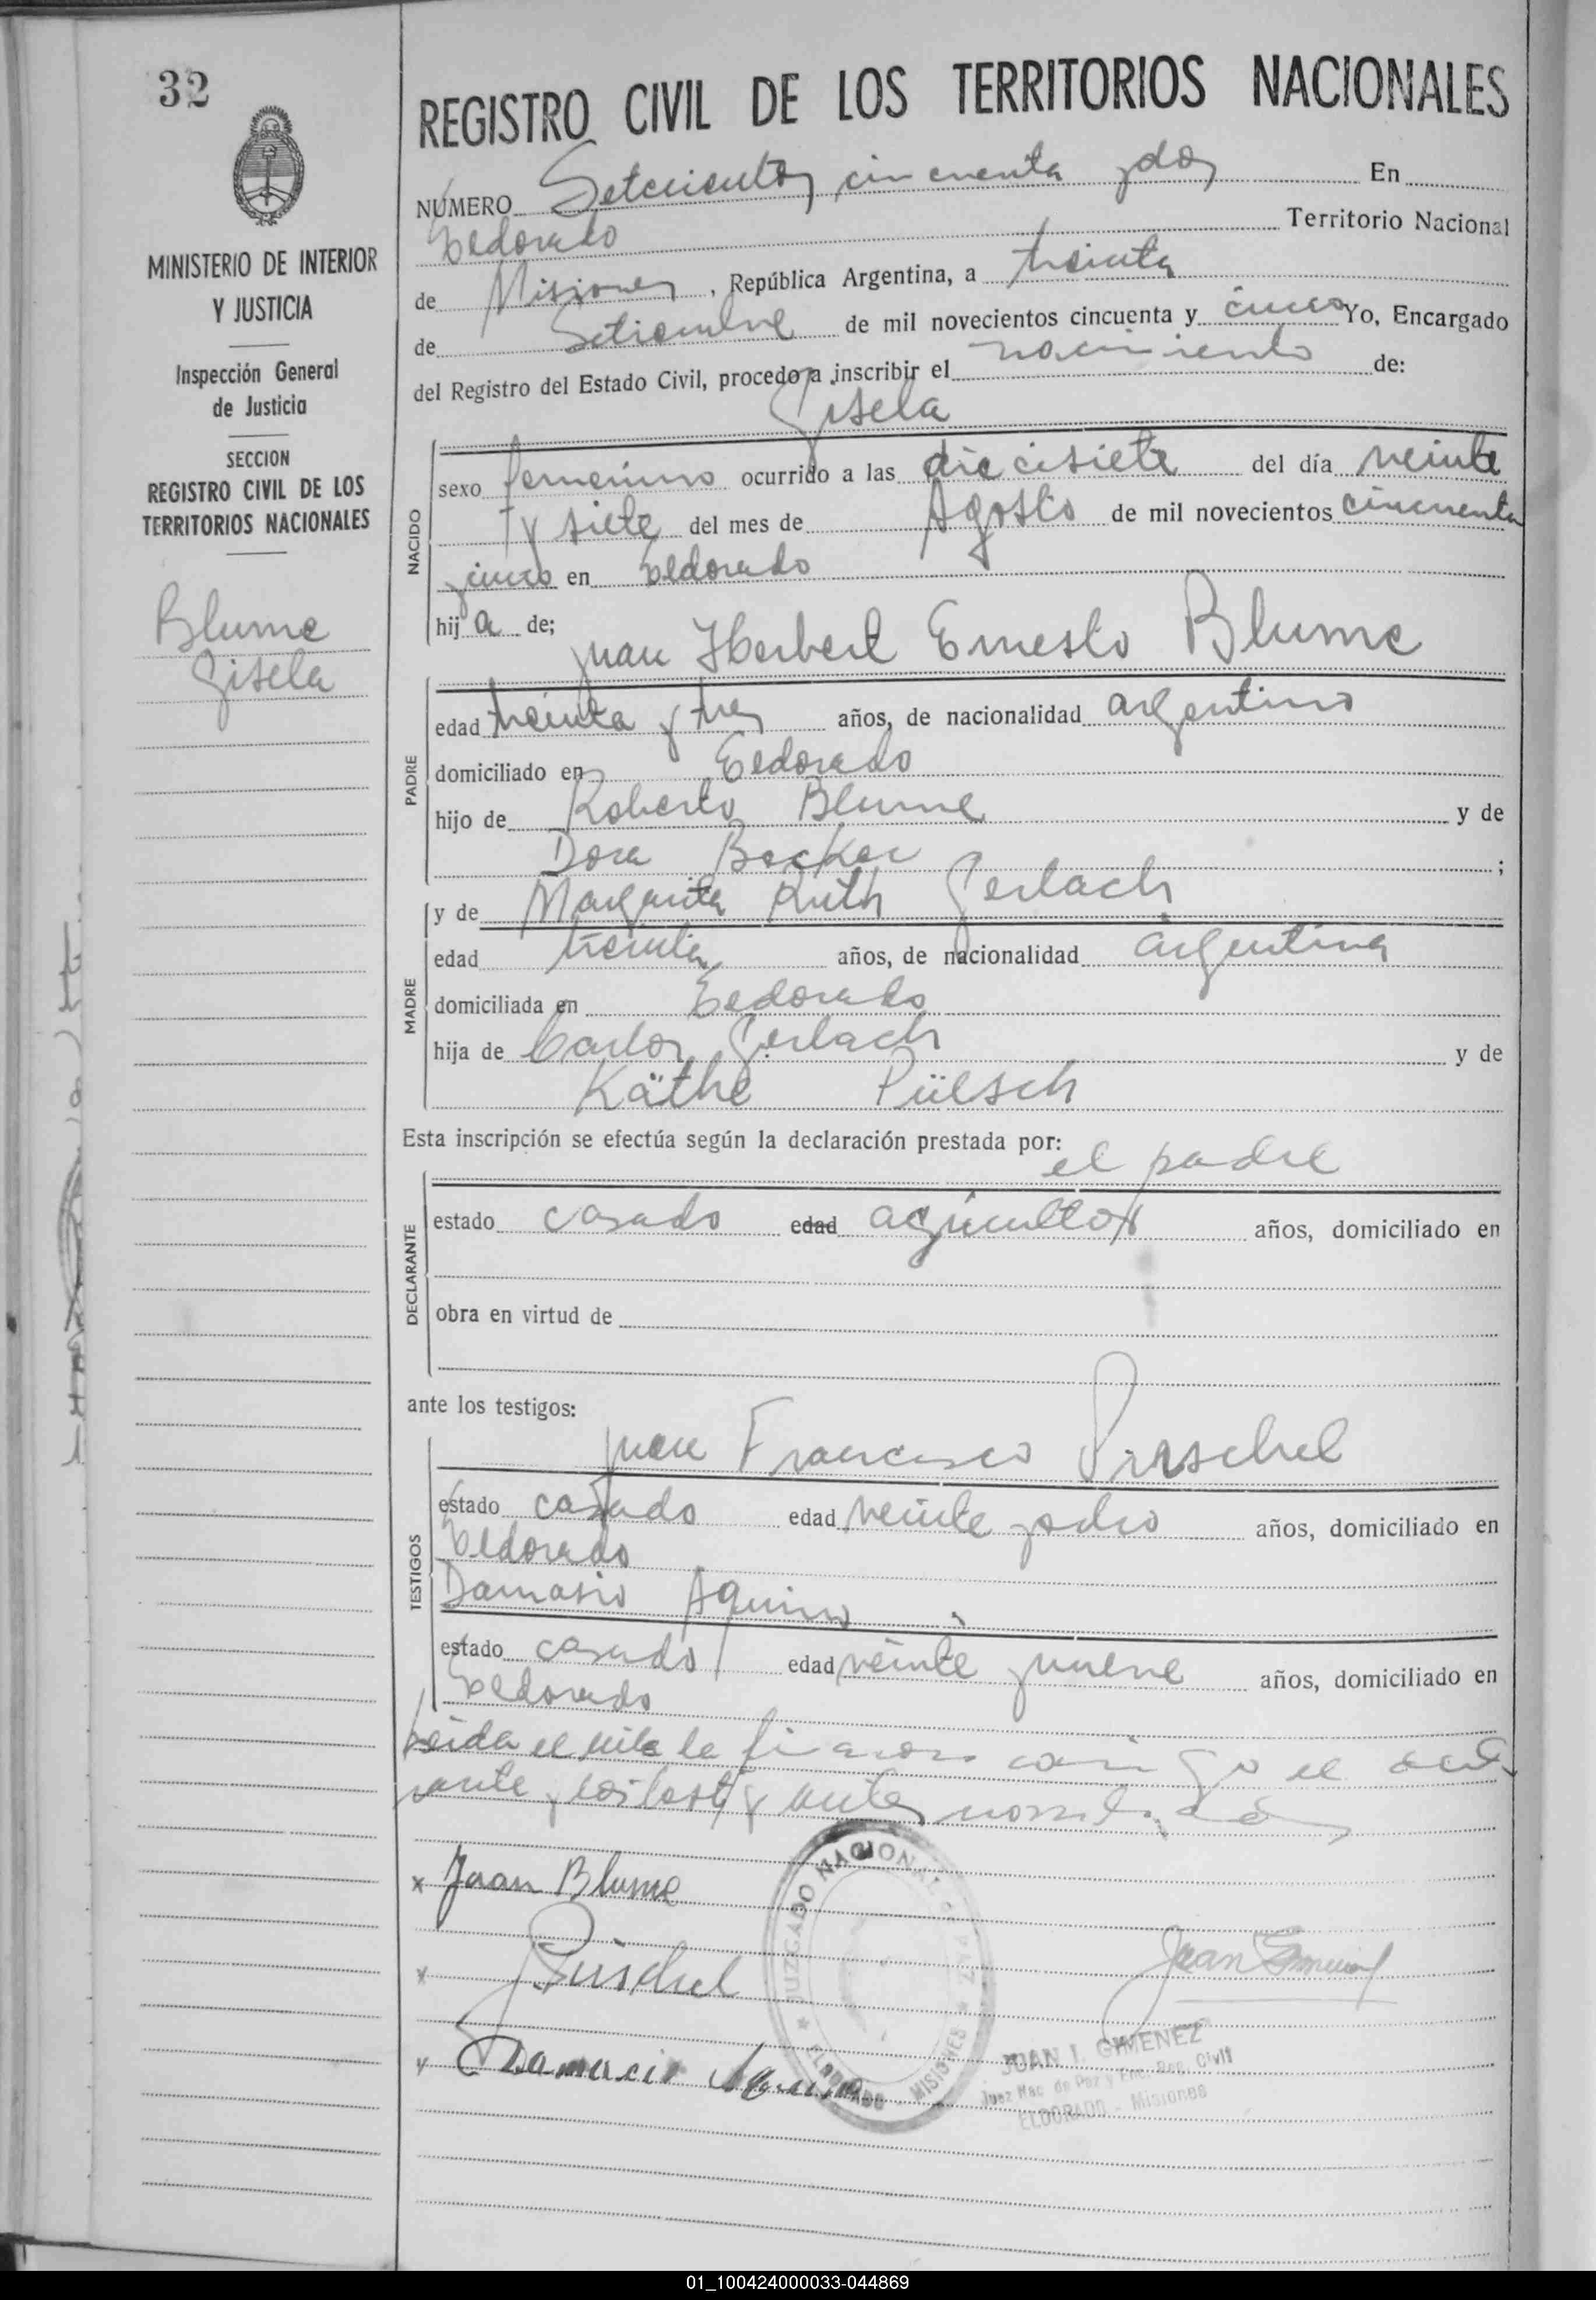 32
REGISTRO CIVIL DE LOS TERRITORIOS NACIONALES
MINISTERIO DE INTERIOR
Y JUSTICIA
Inspección General
de Justicia
SECCION
REGISTRO CIVIL DE LOS
TERRITORIOS NACIONALES
Blume
Gisela
NÚMERO Setecientos cincuenta y dos En
Eldorado Territorio Nacional
de Misiones, República Argentina, a treinta
de Setiembre de mil novecientos cincuenta y cinco Yo, Encargado
del Registro del Estado Civil, procedo a inscribir el nacimiento de:
Gisela
NACIDO
sexo femenino ocurrido a las diecisiete del día veinte
y siete del mes de Agosto de mil novecientos cincuenta
y cinco en Eldorado
hija de;
Juan Herbert Ernesto Blume
PADRE
edad treinta y tres años, de nacionalidad argentino
domiciliado en Eldorado
hijo de Roberto Blume y de
Dora Becker ;
y de Margarita Ruth Gerlach
MADRE
edad treinta años, de nacionalidad argentina
domiciliada en Eldorado
hija de Carlos Gerlach y de
Käthe Pülsch
Esta inscripción se efectúa según la declaración prestada por:
el padre
DECLARANTE
estado casado edad agricultor años, domiciliado en
obra en virtud de
ante los testigos:
Juan Francisco Pirschel
TESTIGOS
estado casado edad veinte y ocho años, domiciliado en
Eldorado
Damasio Aquino
estado casado edad veinte y nueve años, domiciliado en
Eldorado
Leida el acta la firmaron conmigo el decla
rante y los testigos antes nombrados
x Juan Blume
x Pirschel
x Damacio Aquino
JUZGADO NACIONAL DE PAZ
ELDORADO - MISIONES
JUAN I. GIMENEZ
Juez Nac. de Paz y Enc. Reg. Civil
ELDORADO - Misiones
01_100424000033-044869